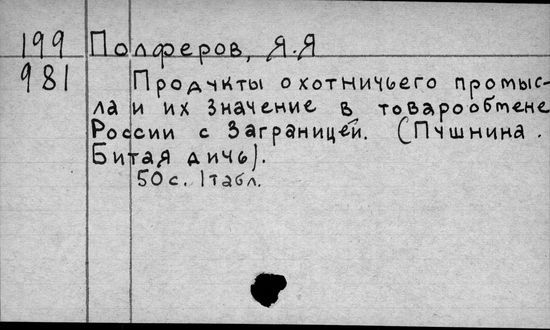 199 Полферов, Я.Я
981 Продукты охотничьего промыс-
ла и их значение в товарообмене
России с Заграницей. (Пушнина.
Битая дичь).
50с. 1табл.